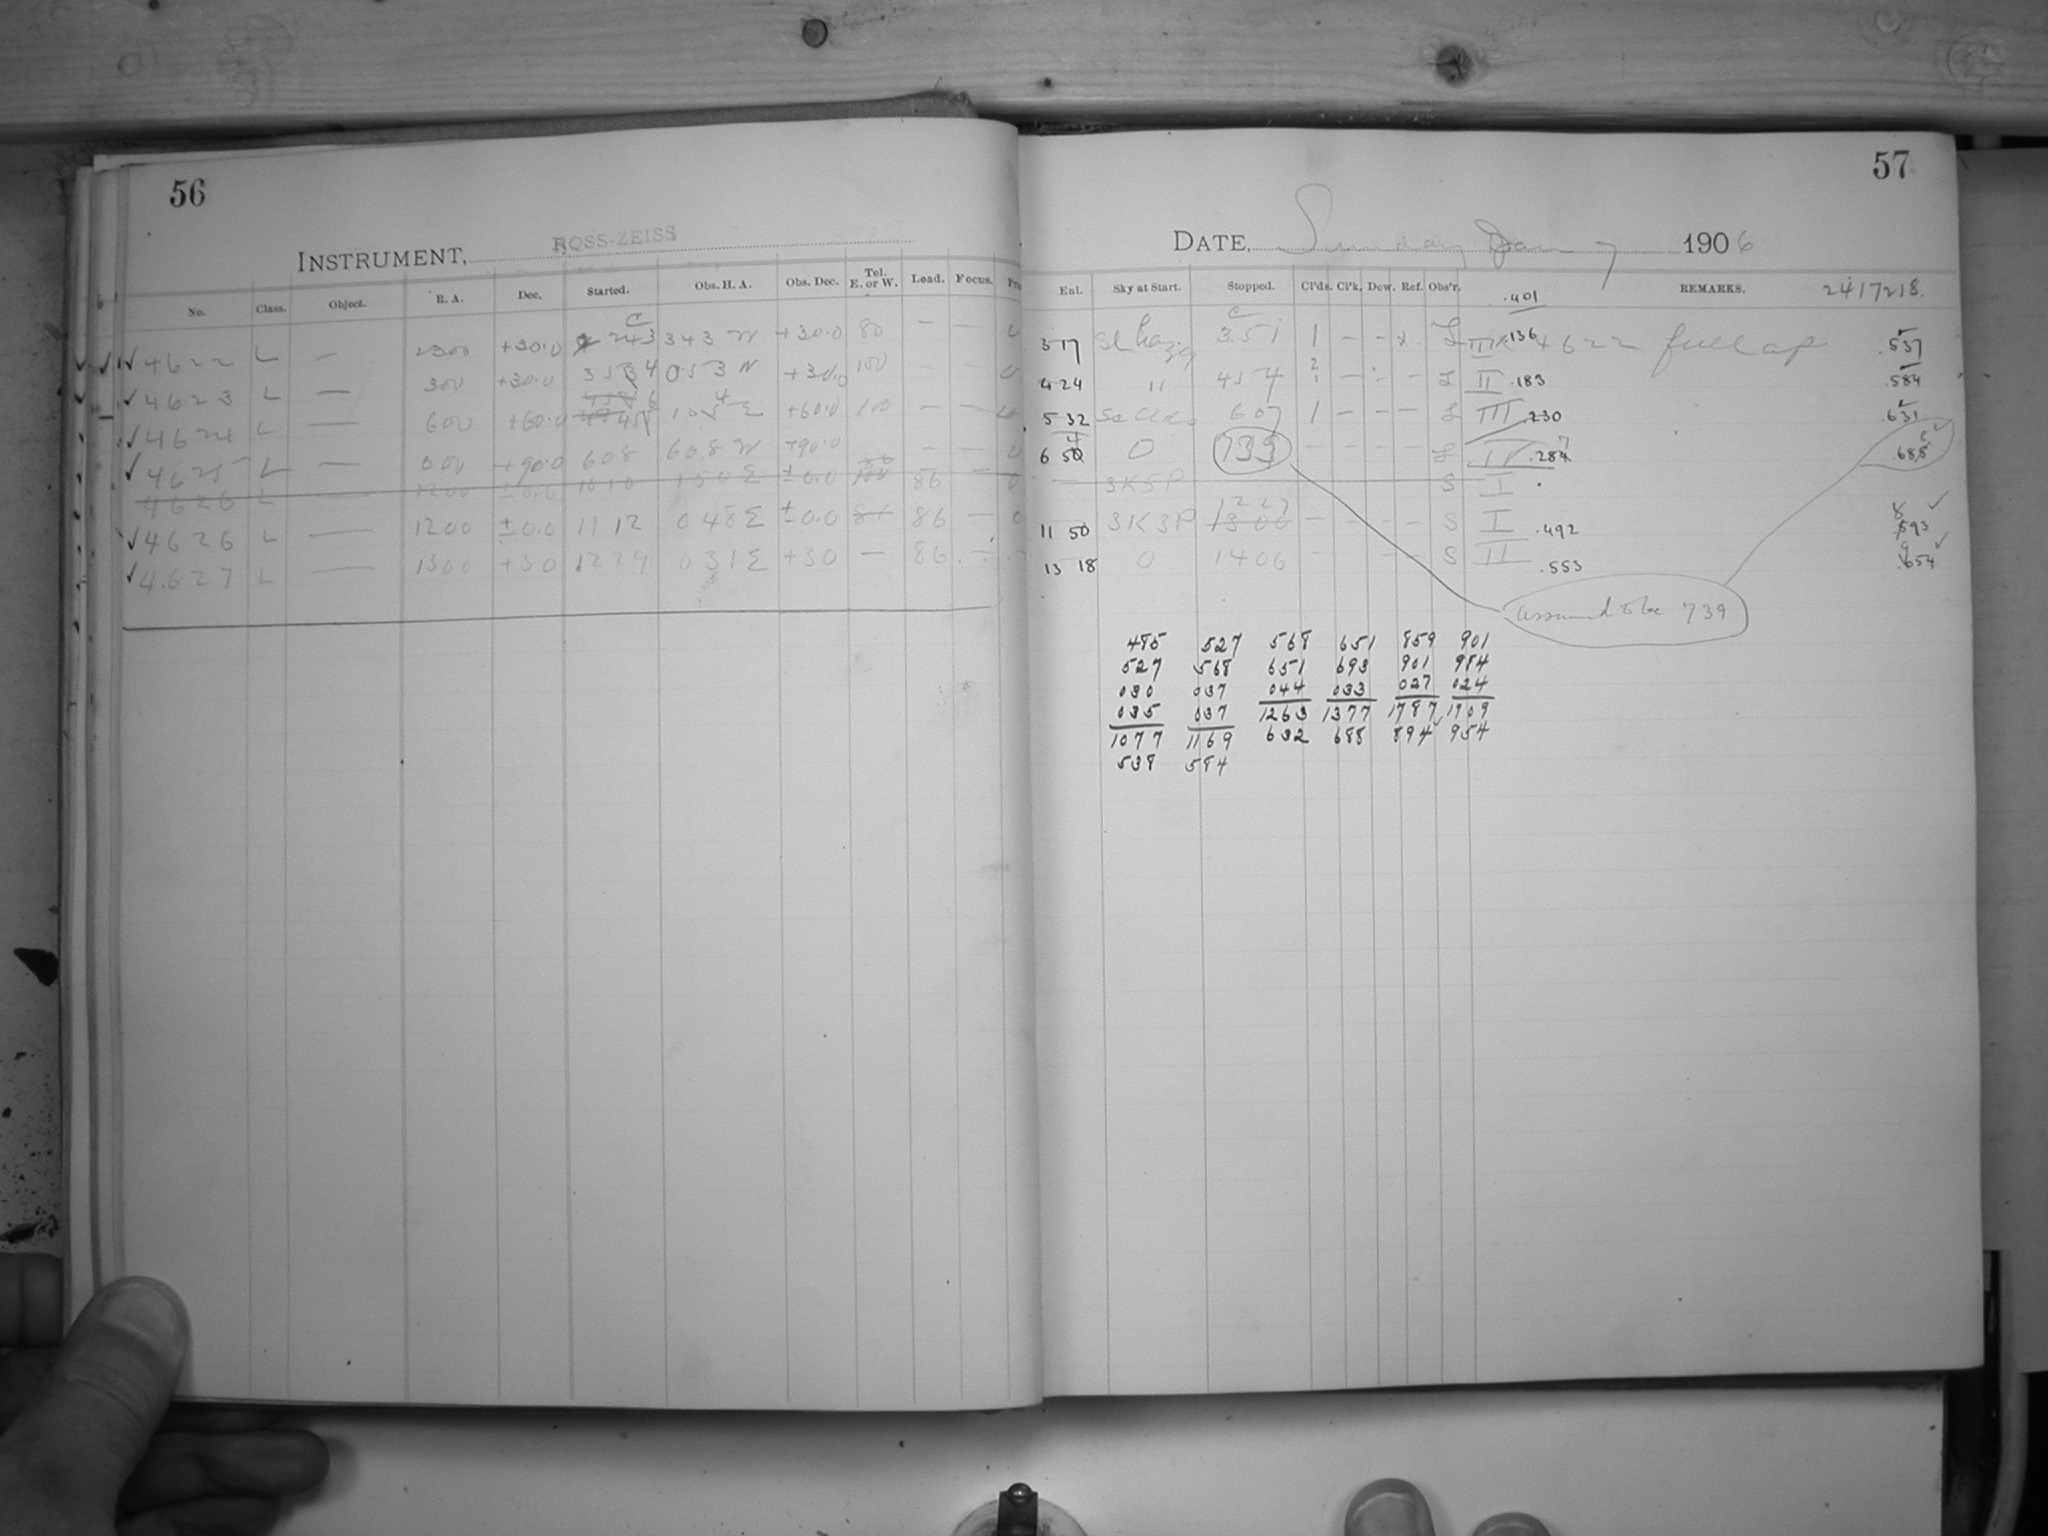 56
INSTRUMENT, ROSS-ZEISS
No. Class. Object. R. A. Dec. Started. Obs. H. A. Obs. Dec. Tel. E. or W. Load. Focus.
4622 L — 2300 +30.0 243 343 W +30.0 80 — —
4623 L — 300 +30.0 053 W +30.0 100 — —
4624 L — 600 +60.0 +60.0 100 — —
4625 L — 000 +90.0 608 608 W +90.0 — —
4626 L 1200 ±0.0 1010 150 E ±0.0 100 86 —
4626 L — 1200 ±0.0 1112 048 E ±0.0 86 —
4627 L — 1300 +30 1229 031 E +30 — 86
57
DATE, Sunday Jan 7 1906
Enl. Sky at Start. Stopped. Cl'ds. Cl'k. Dew. Ref. Obs'r. REMARKS. 2417218.
.401
3 17 Sl hazy 351 1 — — x L .136 4622 full ap .537
4 24 " 454 — — L II .183 .584
5 32 607 1 — — — L III .230 .631
6 0 733 — — — — L IV .688
— 3K5P S I
11 50 3K3P 1300 1227 — — — — S I .492
13 18 0 1406 — — — — S II .553 .654
assumed to be 739
485 527 568 651 859 901
527 568 651 693 901 984
030 037 044 033 027 024
035 037 1263 1377 1787 1909
1077 1169 632 688 894 954
538 584